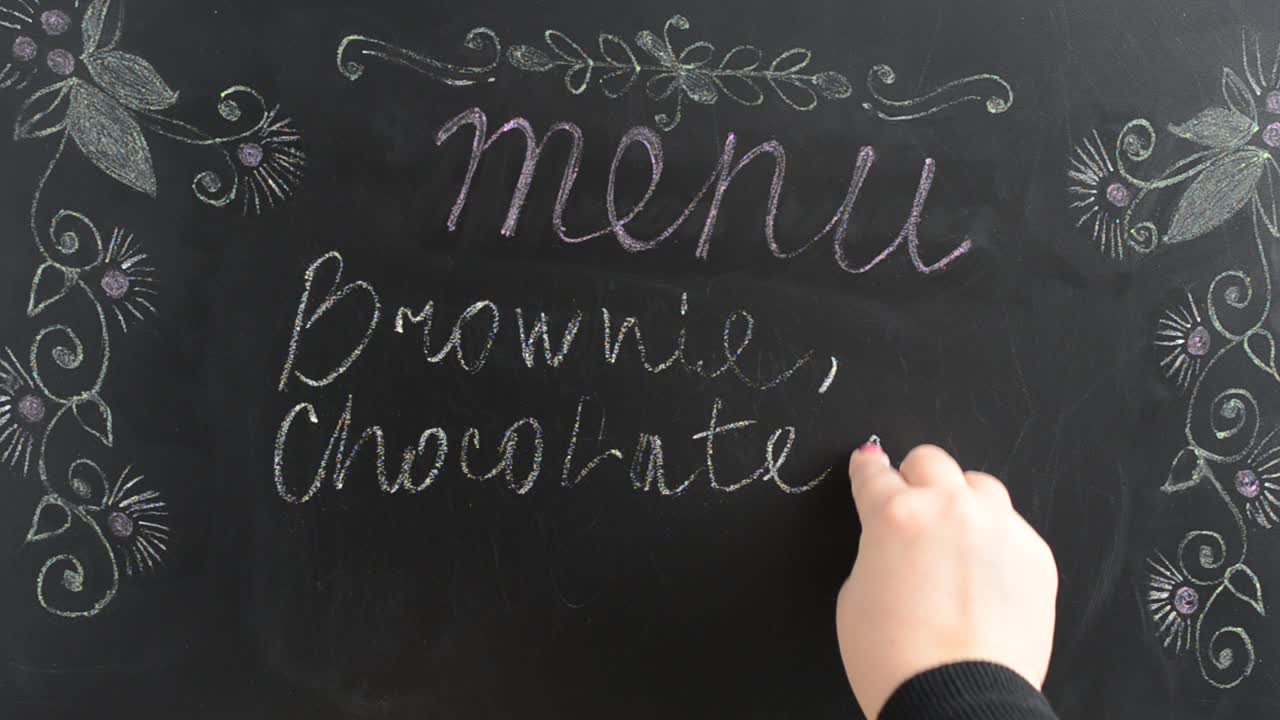 menu
Brownie,
Chocolate